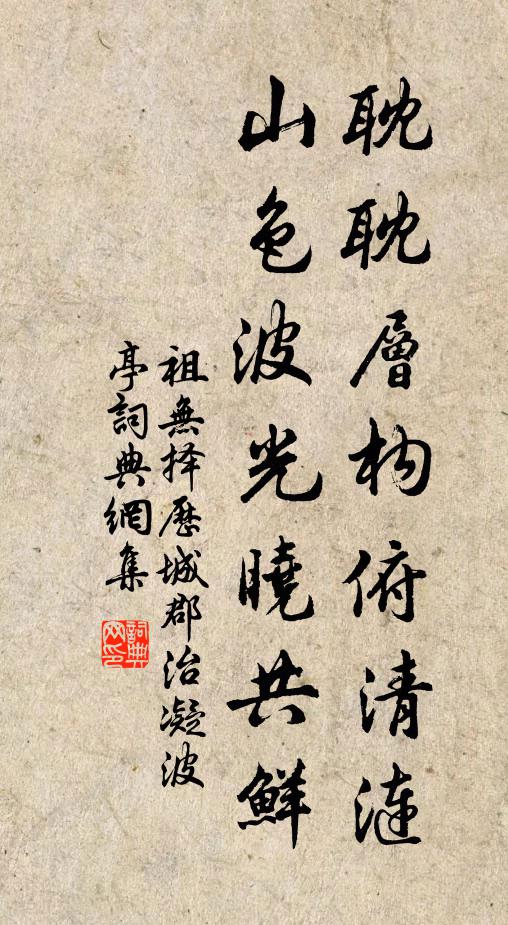 耽耽層构俯清漣
山色波光曉共鮮
祖無择歷城郡治凝波
亭詞典網集
詞典網印